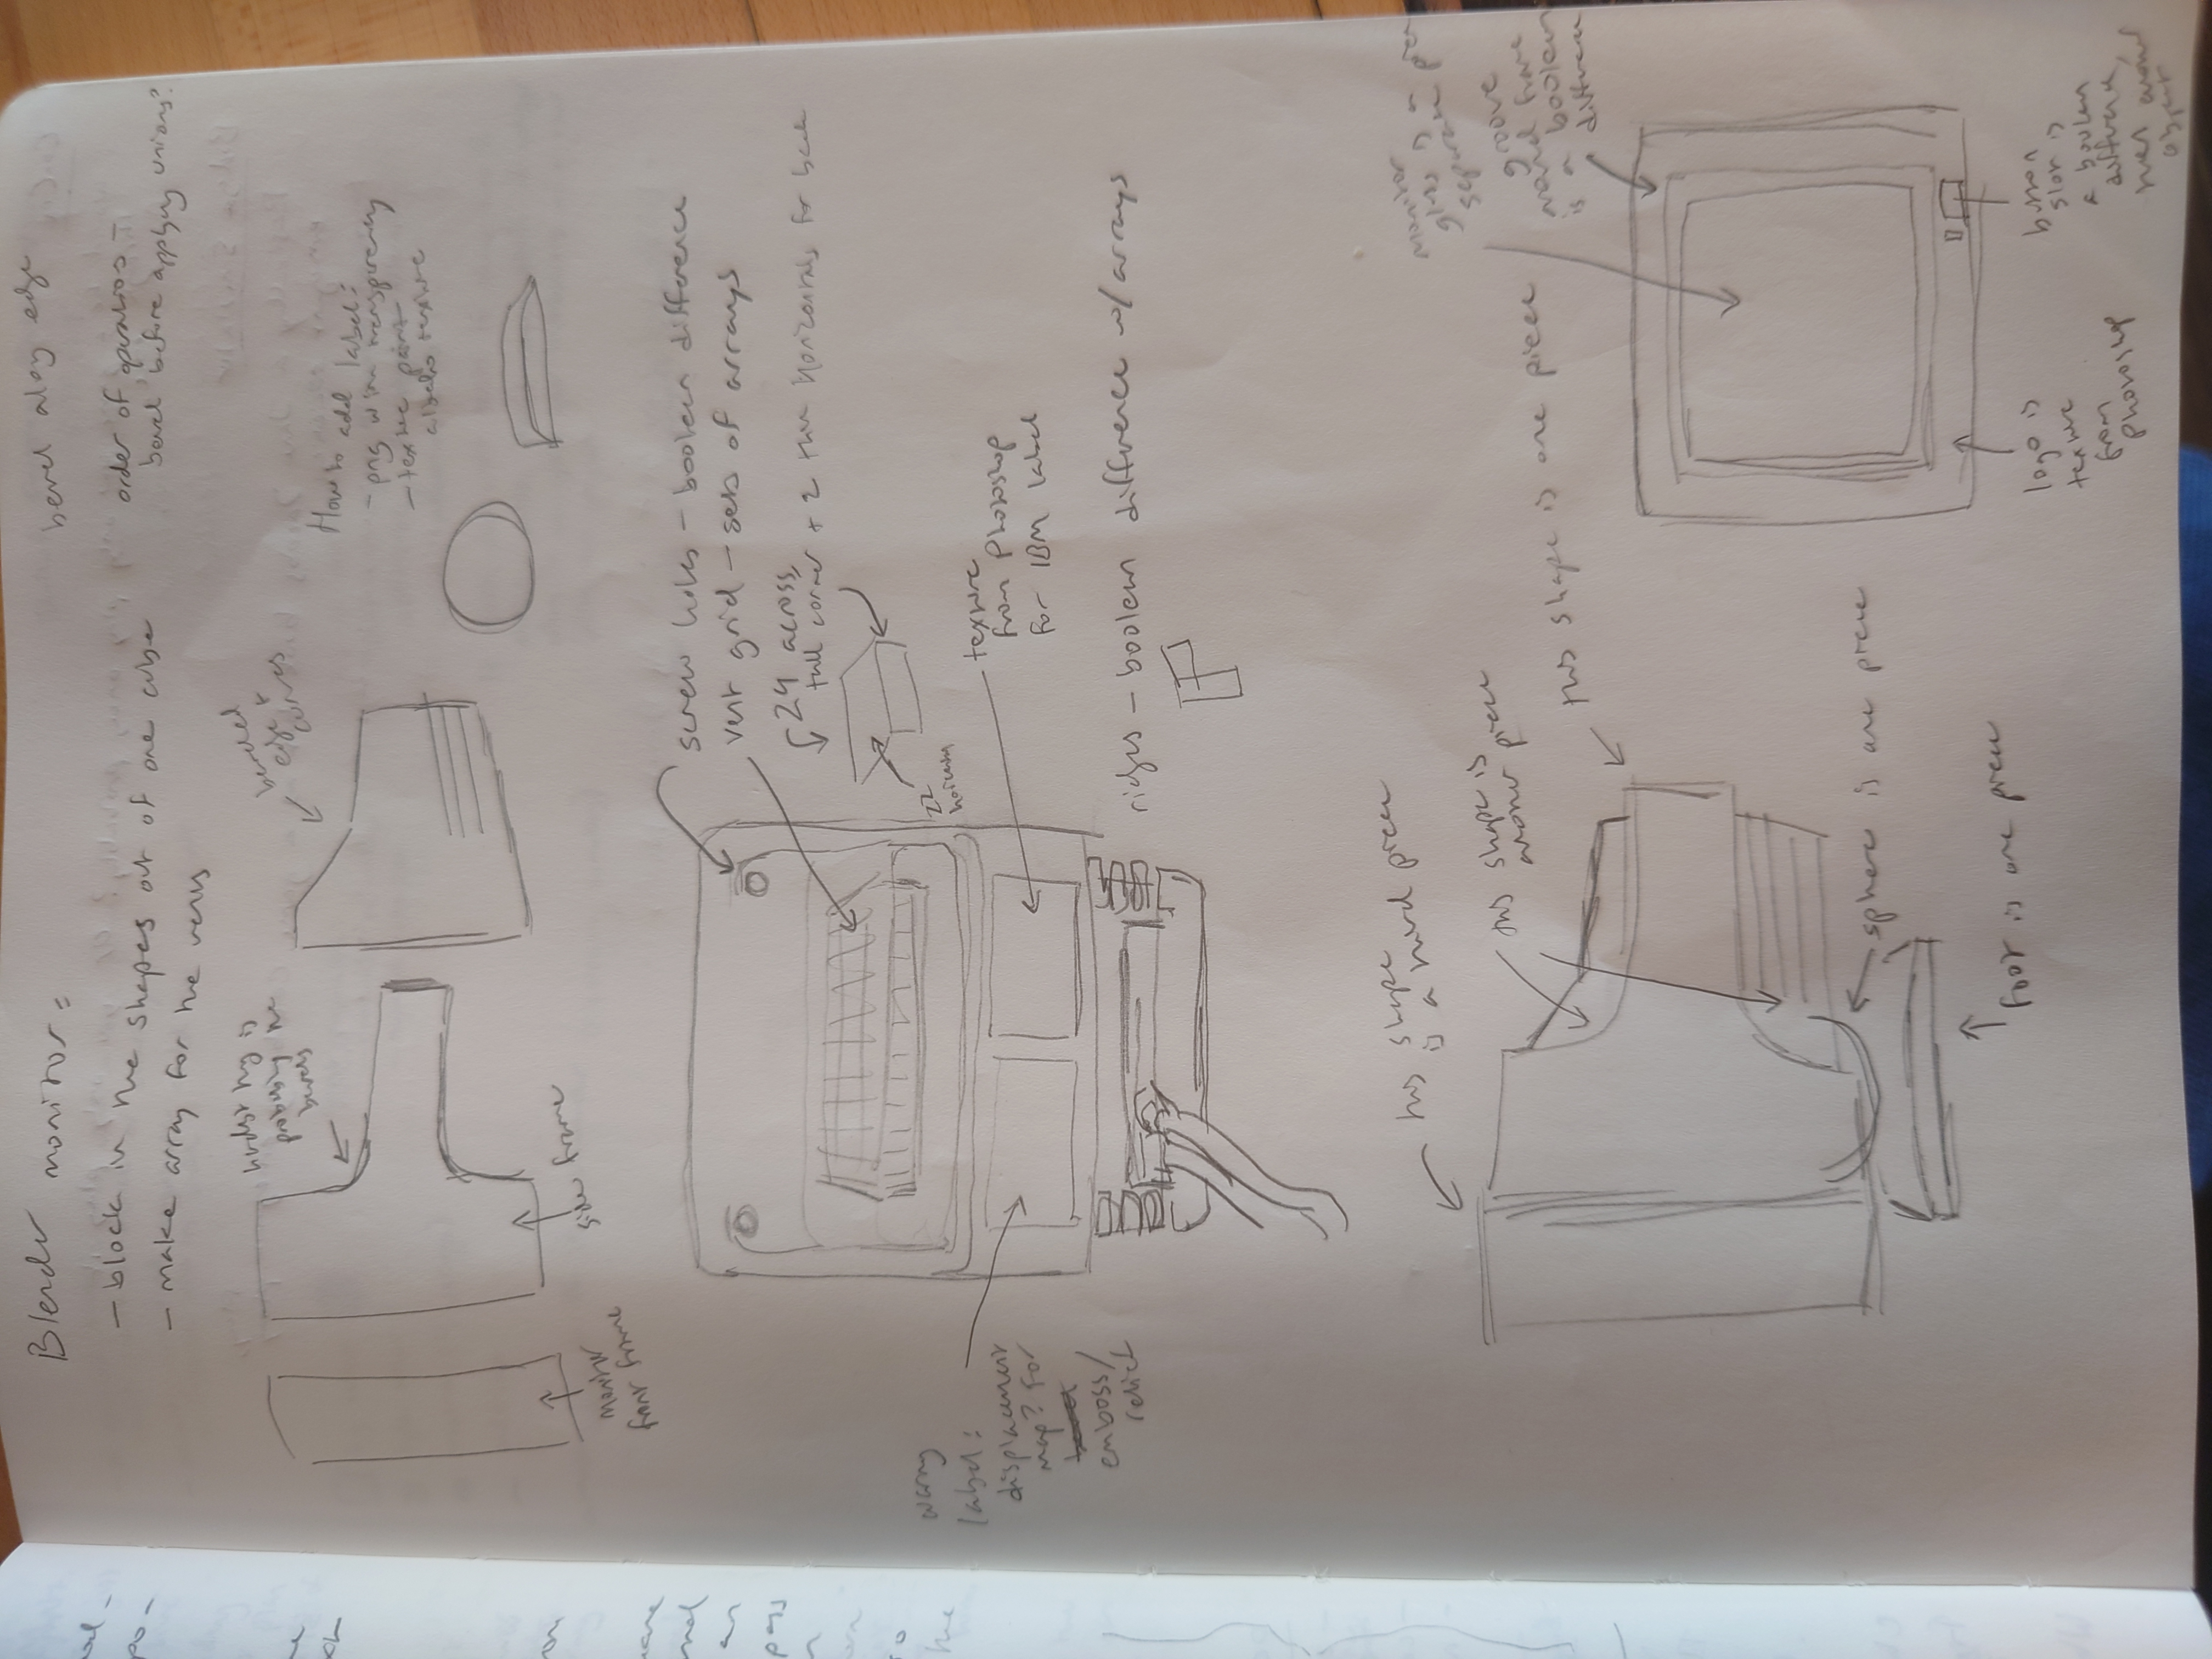 Blender monitor:
- block in the shapes out of one cube
- make array for the vents
bevel along edge
order of operations -
bevel before applying unions?
hardest thing is
probably the
bevels
beveled
edge +
curves
How to add label:
- png with transparency
- texture paint
albedo texture
monitor
front frame
side frame
screw holes - boolean difference
vent grid - sets of arrays
24 across,
tall corner + 2 thin horizontals for back
22
warning
label:
displacement
map? for
bevel
emboss/
relief
texture
from Photoshop
for IBM label
ridges - boolean difference w/ arrays
this shape
is a third piece
this shape is
another piece
this shape is one piece
sphere is one piece
foot is one piece
monitor
glass is a
separate piece
groove
round frame
is a boolean
difference
logo is
texture
from
photoshop
button
slot is
a boolean
difference,
then another
object